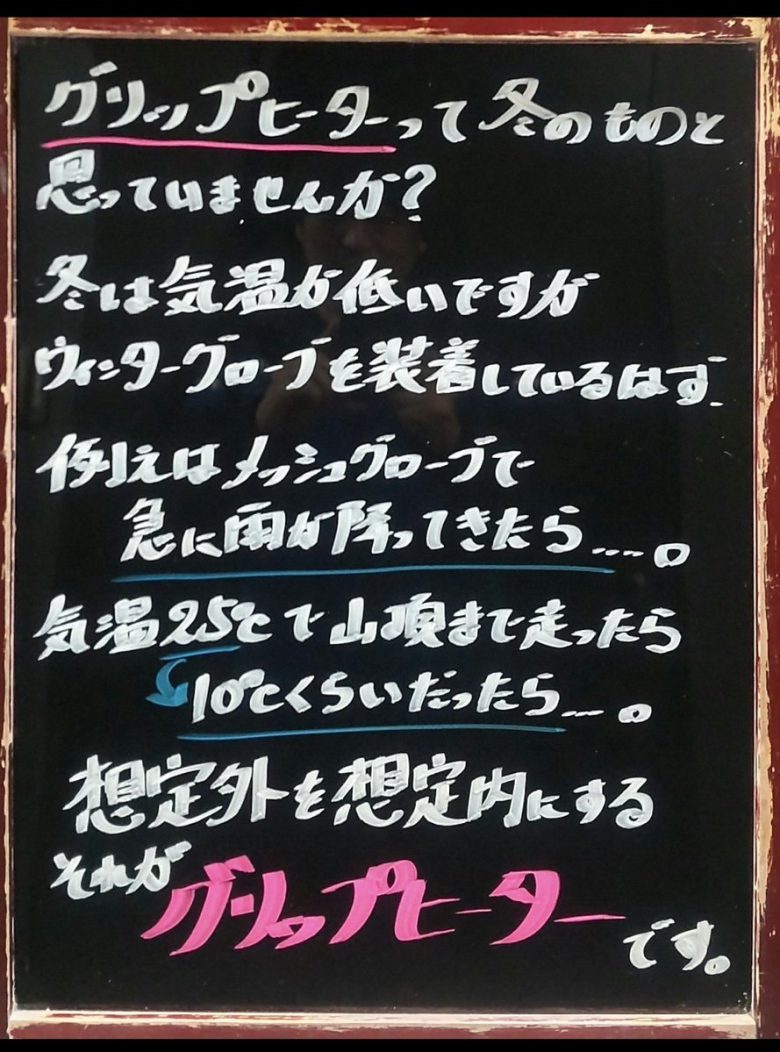 グリップヒーターって冬のものと
思っていませんか?
冬は気温が低いですが
ウィンターグローブを装着しているはず.
例えばメッシュグローブで
急に雨が降ってきたら....。
気温25℃で山頂まで走ったら
10℃くらいだったら...。
想定外を想定内にする
それが
グリップヒーター
です。